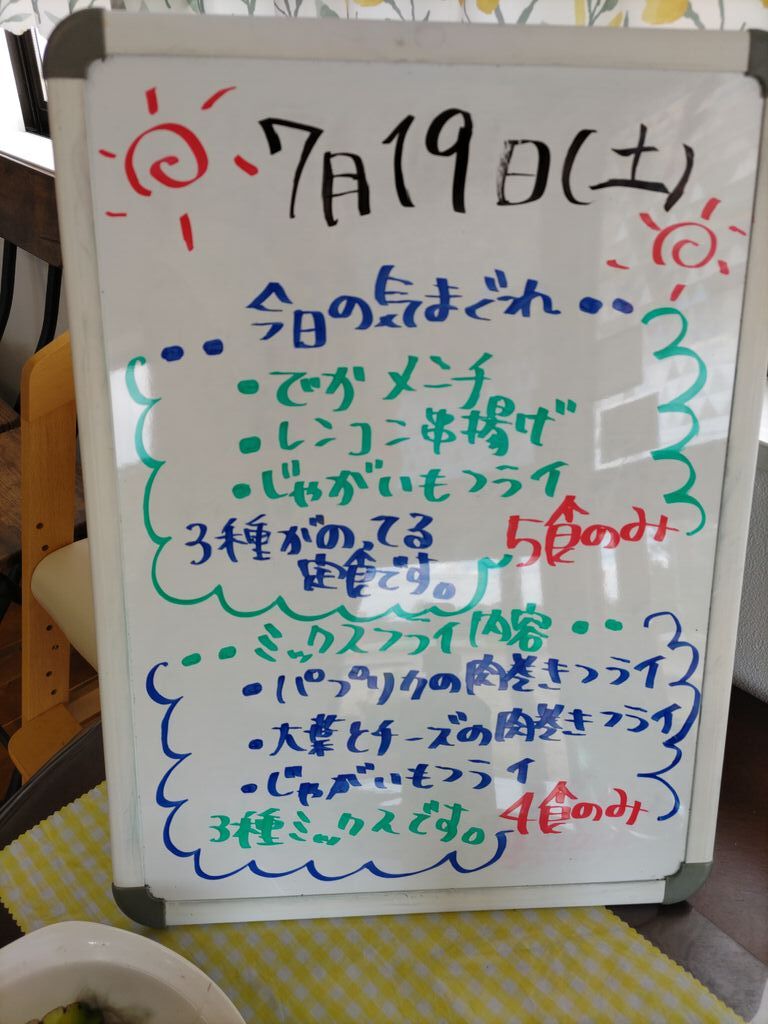 7月19日(土)
今日の気まぐれ
・でかメンチ
・レンコン串揚げ
・じゃがいもフライ
3種がのってる
定食です。
5食のみ
ミックスフライ内容
・パプリカの肉巻きフライ
・大葉とチーズの肉巻きフライ
・じゃがいもフライ
3種ミックスです。
4食のみ